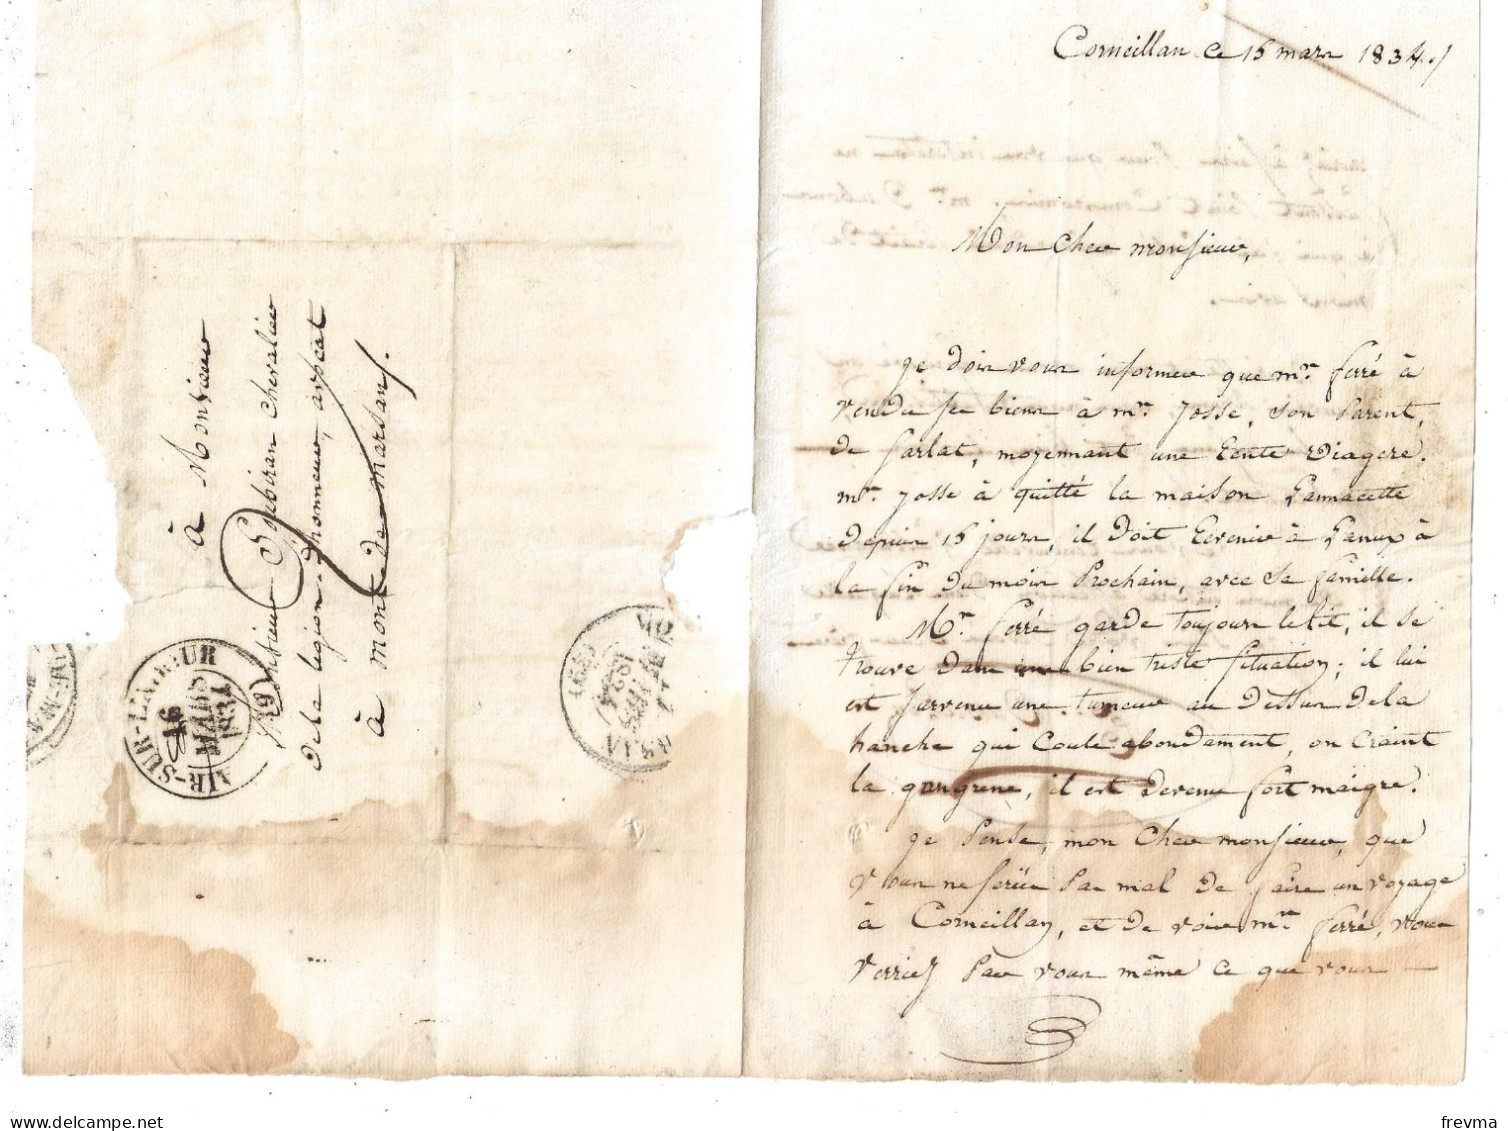 Corneillan ce 15 mars 1834./
Mon cher monsieur,
je dois vous informer que mr. ferré à
vendu se biens à mr. josse, son parent,
de farlat, moyennant une rente viagere.
mr. josse à quitté la maison Pannacette
depuis 15 jours, il doit revenir à
la fin du mois prochain, avec sa famille.
Mr. ferré garde toujours le lit, il se
trouve dans une bien triste situation; il lui
est parvenu une tumeur au dessus de la
hanche qui coule abondament, on craint
la gangrene, il est devenu fort maigre.
je pense, mon cher monsieur, que
vous ne feriée pas mal de faire un voyage
à Corneillan, et de voir mr. ferré, vous
verriez par vous même ce que vous
à Monsieur
Soubiran chevalier
de la legion d'honneur, avocat
à mont de marsan.
AIR-SUR-L'ADOUR
16
MARS
1834
(39)
freyma